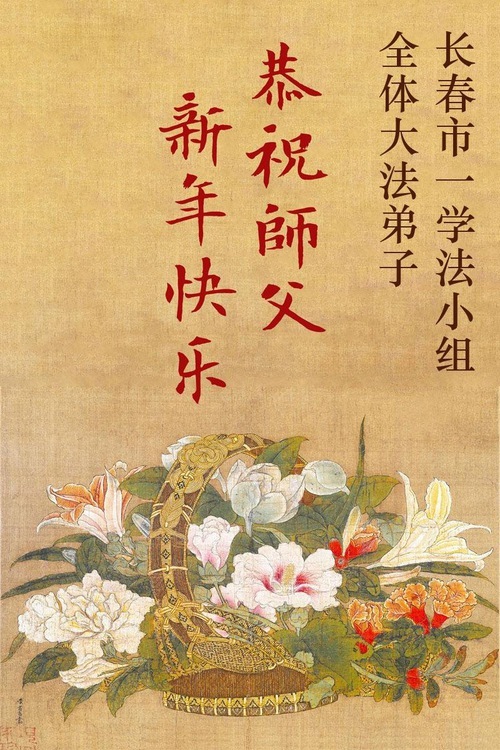 长春市一学法小组
全体大法弟子
恭祝師父
新年快乐